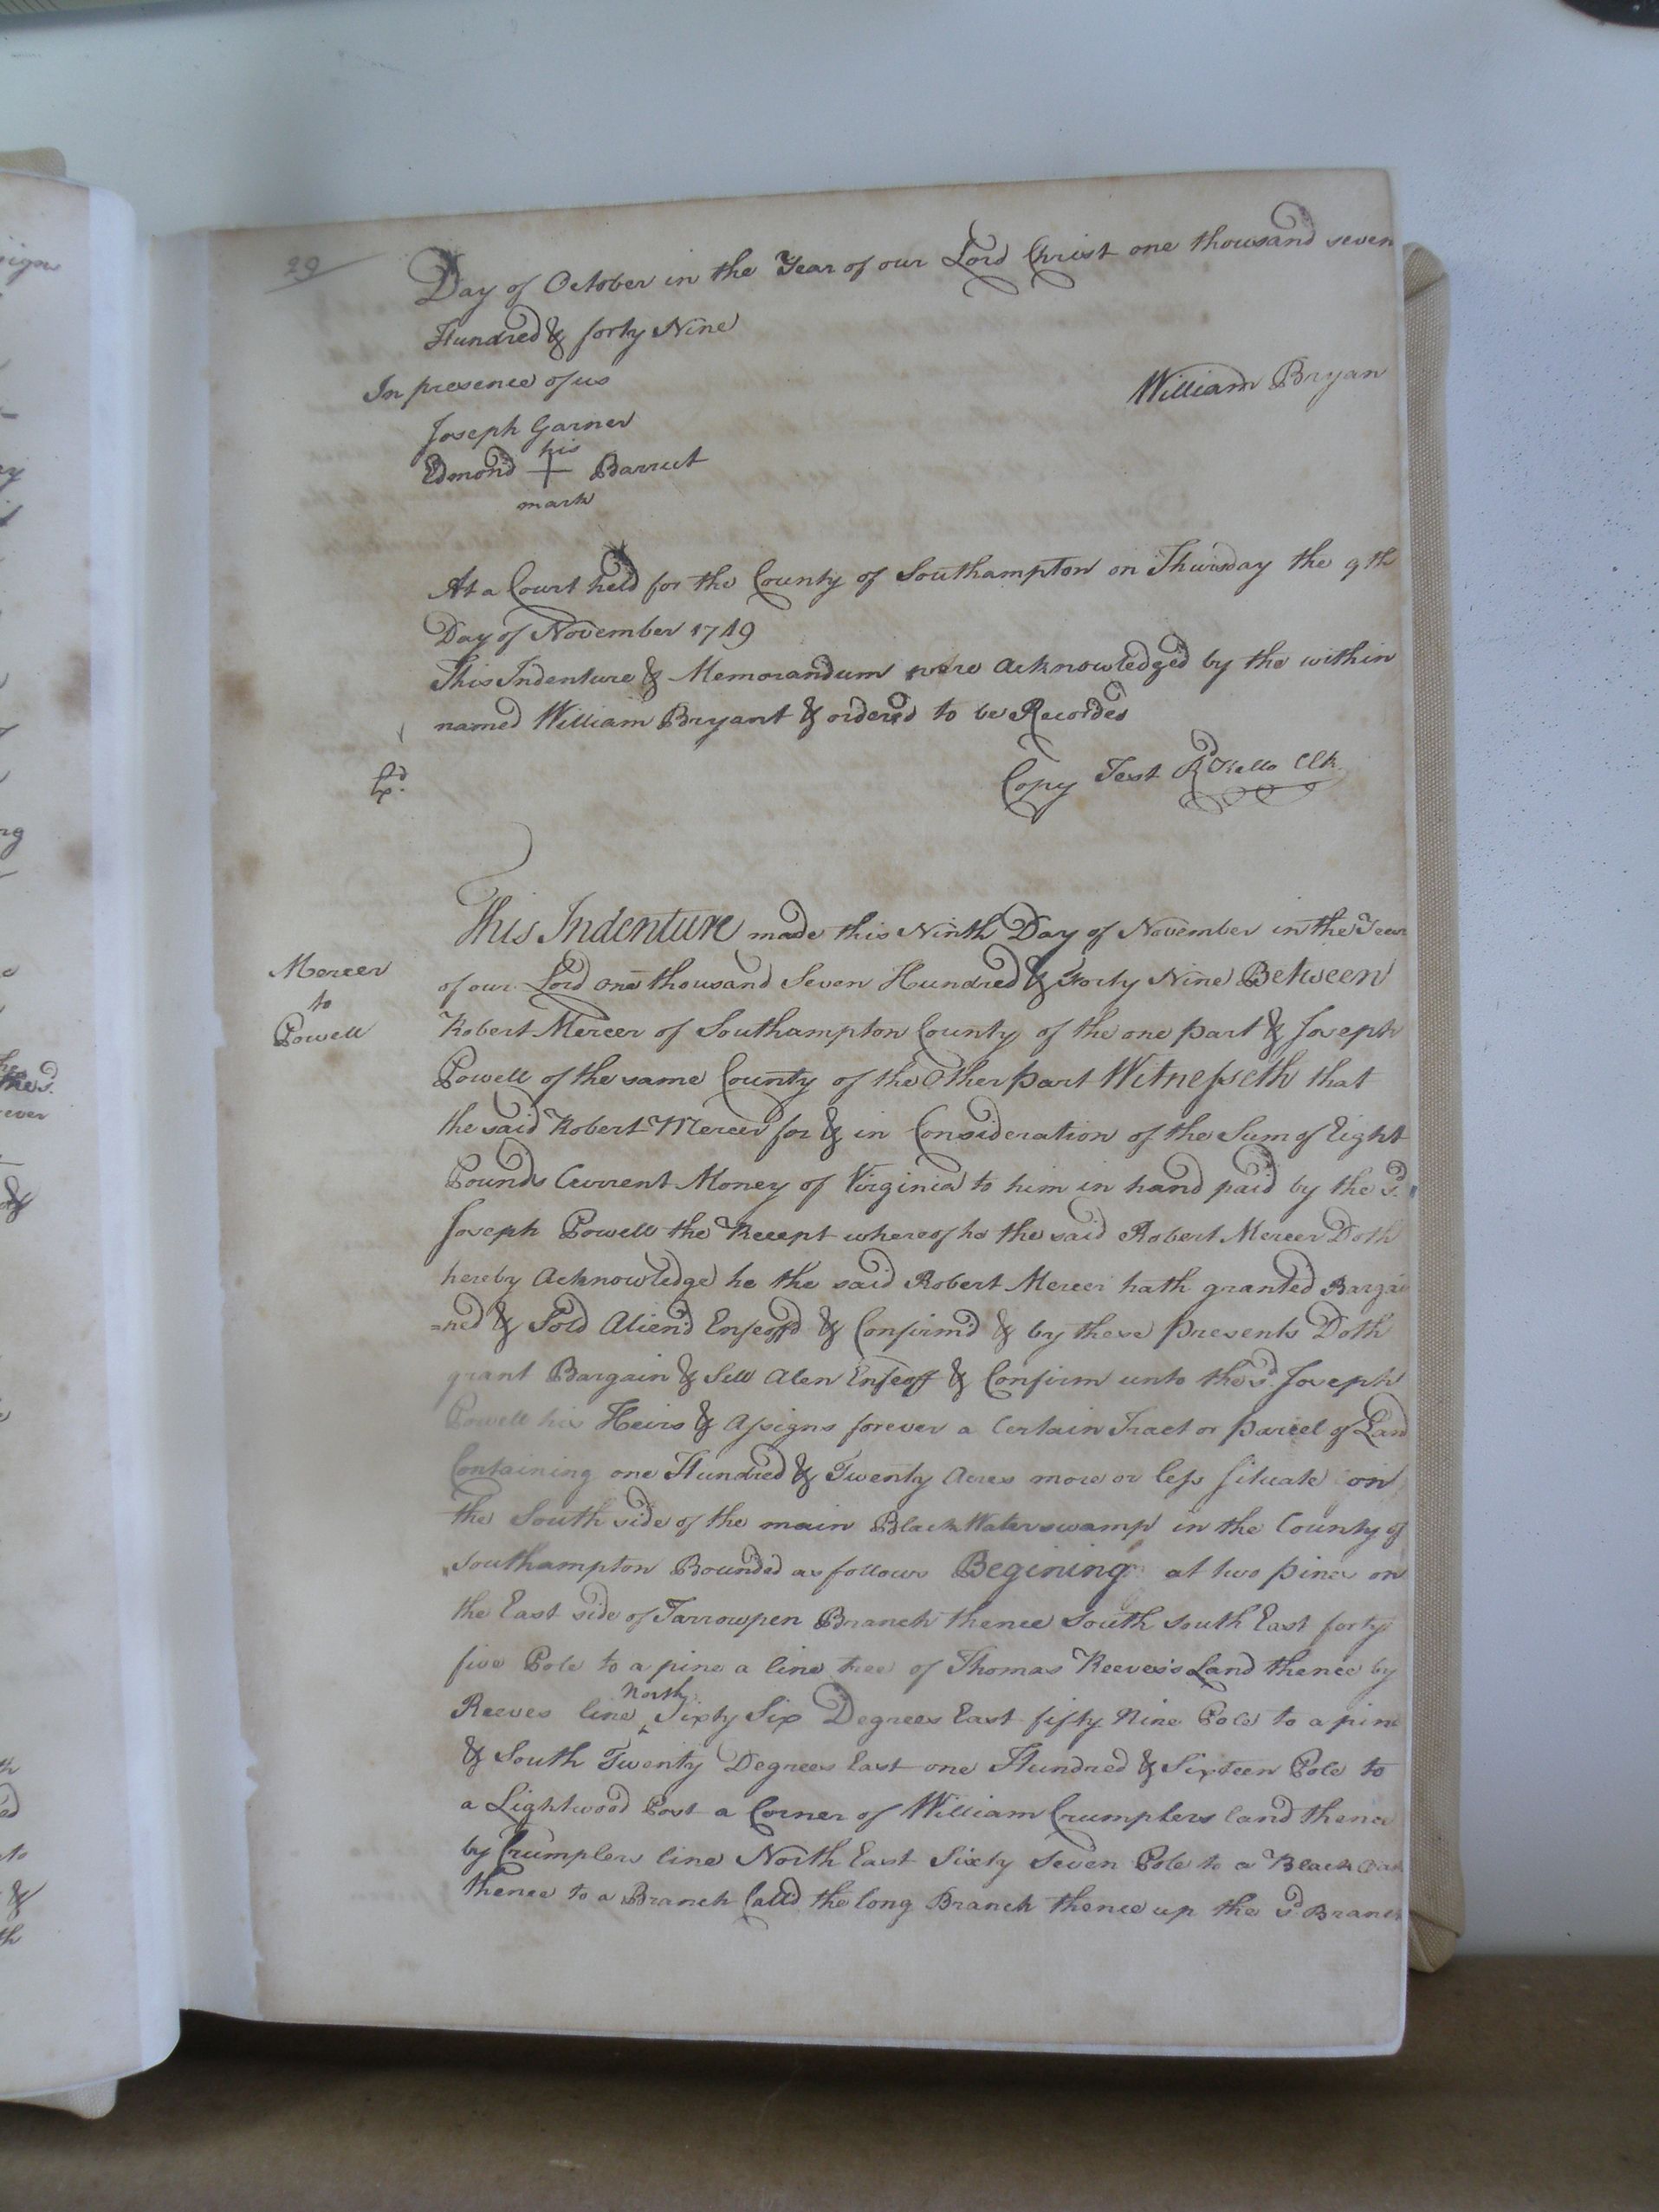 29
Day of October in the Year of our Lord Christ one thousand seven
Hundred & forty Nine
In presence of us
William Bryan
Joseph Garner
his
Edmond + Barrut
mark
At a Court held for the County of Southampton on Thursday the 9th
Day of November 1749
This Indenture & Memorandum were acknowledged by the within
named William Bryant & ordered to be Recorded
Copy Test Rd Kello Clk
This Indenture made this Ninth Day of November in the Year
Mercer
to
Powell
of our Lord one thousand Seven Hundred & Forty Nine Between
Robert Mercer of Southampton County of the one part & Joseph
Powell of the same County of the Other part Witnesseth that
the said Robert Mercer for & in Consideration of the Sum of Eight
Pounds Current Money of Virginia to him in hand paid by the sd.
Joseph Powell the Recept whereof he the said Robert Mercer Doth
hereby Acknowledge he the said Robert Mercer hath granted Bargai
=ned & Sold Aliend Enfeoffd & Confirmd & by these Presents Doth
grant Bargain & Sell Alen Enfeoff & Confirm unto the sd. Joseph
Powell his Heirs & Assigns forever a Certain Tract or parcel of Land
Containing one Hundred & Twenty Acres more or less situate on
the South side of the main Black Water swamp in the County of
Southampton Bounded as follows Begining at two pines on
the East side of Tarrowpen Branch thence South South East forty
five Pole to a pine a line tree of Thomas Reeves's Land thence by
Reeves line North Sixty Six Degrees East fifty Nine Pole to a pine
& South Twenty Degrees East one Hundred & Sixteen Pole to
a Lightwood Post a Corner of William Crumplers land thence
by Crumplers line North East Sixty Seven Pole to a Black Oak
thence to a Branch Calld the long Branch thence up the sd. Branch